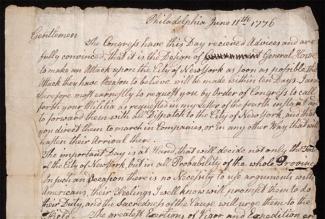 Philadelphia June 11th 1776
Gentlemen
The Congress have this Day received Advices and are
fully convinced, that it is the Design of General Howe
to make an Attack upon the City of New York as soon as possible. The
Attack they have Reason to believe will be made within ten Days. I am
therefore most earnestly to request you by Order of Congress to call
forth your Militia as requested in my Letter of the fourth inst. and
to forward them with all Dispatch to the City of New York, and that
you direct them to march in Companies, or in any other Way that will
hasten their Arrival there.
The important Day is at Hand, that will decide not only the Fate
of the City of New York, but in all Probability of the whole Province
In such an Occasion there is no Necessity to use arguments with
Americans; their Feelings I well know will prompt them to do
their Duty, and the Sacredness of the Cause will urge them to the
The greatest Exertions of Vigor and Expedition are